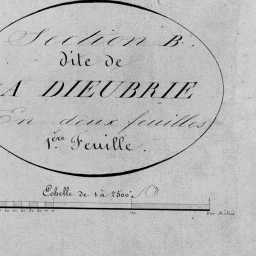 Section B.
dite de
A DIEUBRIE
En deux feuilles
1ère Feuille.
Echelle de 1 à 2500